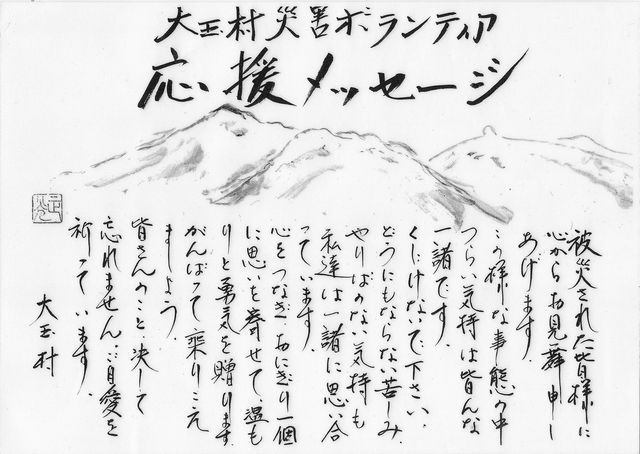 大玉村災害ボランティア
応援メッセージ
被災された皆様に
心からお見舞申し
あげます
この様な事態の中
つらい気持は皆んな
一諸です。
くじけないで下さい。
どうにもならない苦しみ
やりばのない気持も
私達は一諸に思い合
っています。
心をつなぎ おにぎり一個
に思いを寄せて、温も
りと勇気を贈ります
がんばって乗りこえ
ましょう。
皆さんのこと決して
忘れません。ご自愛を
祈っています。
大玉村